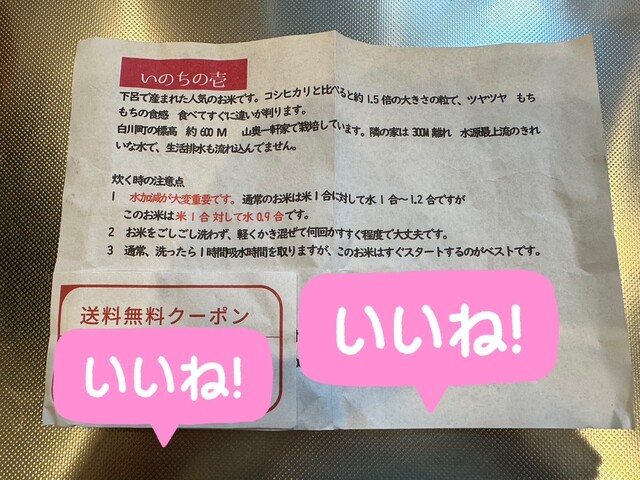 いのちの壱
下呂で産まれた人気のお米です。コシヒカリと比べると約1.5倍の大きさの粒で、ツヤツヤ　もち
もちの食感　食べてすぐに違いが判ります。
白川町の標高　約600M　山奥一軒家で栽培しています。隣の家は300M離れ　水源最上流のきれ
いな水で、生活排水も流れ込んでません。
炊く時の注意点
1　水加減が大変重要です。通常のお米は米1合に対して水1合～1.2合ですが
このお米は米1合対して水0.9合です。
2　お米をごしごし洗わず、軽くかき混ぜて何回かすすぐ程度で大丈夫です。
3　通常、洗ったら1時間吸水時間を取りますが、このお米はすぐスタートするのがベストです。
送料無料クーポン
いいね!
いいね!